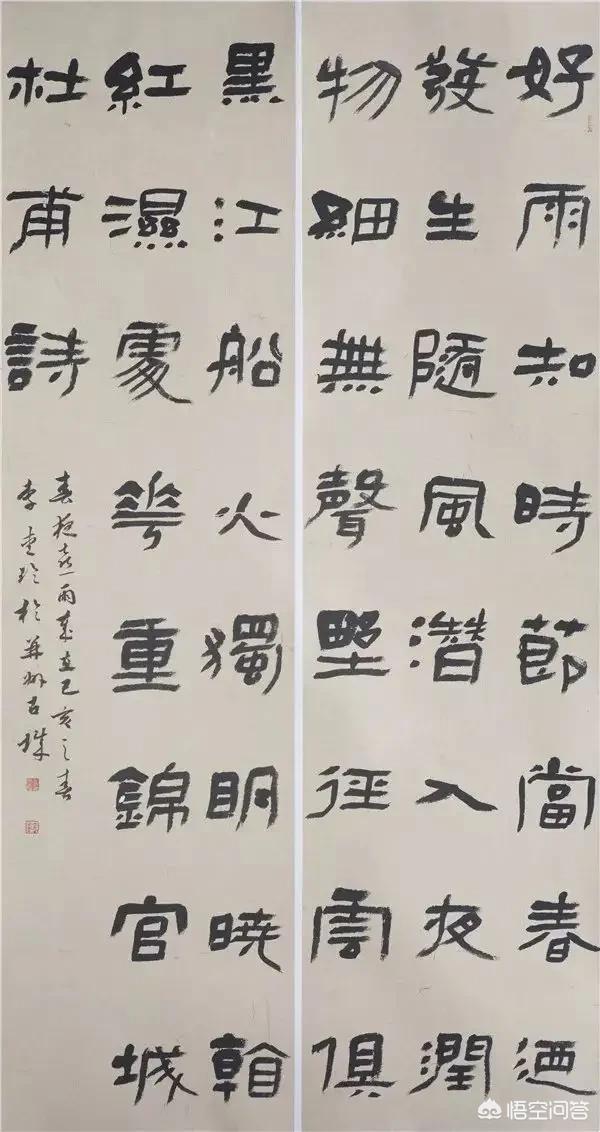 好雨知時節當春迺
發生隨風潛入夜潤
物細無聲野徑雲俱
黑江船火獨眀曉看
紅濕處花重錦官城
杜甫詩
春夜喜雨歲在己亥之春
李玲於并州
悟空问答